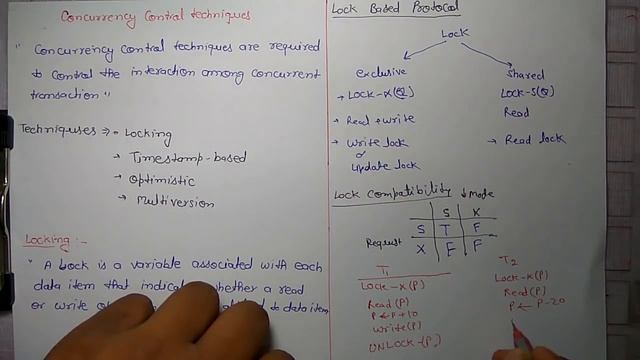 Concurrency Control techniques
" Concurrency Control techniques are required
to control the interaction among concurrent
transaction "
Techniquses ⇒ • Locking
→ Timestamp-based
→ Optimistic
→ Multiversion
Locking :-
" A Lock is a variable associated with each
data item that whether a read
or write data item
Lock Based Protocol
Lock
exclusive
→ Lock-X(Q)
→ Read + write
→ write lock
or
update lock
shared
Lock-S(Q)
Read
→ Read lock
Lock Compatibility ↓ Mode
S X
S T F
Request X F F
T1
Lock-X(P)
Read(P)
P ← P+10
Write(P)
UNLOCK-(P)
T2
Lock-X(P)
Read(P)
P ← P-20